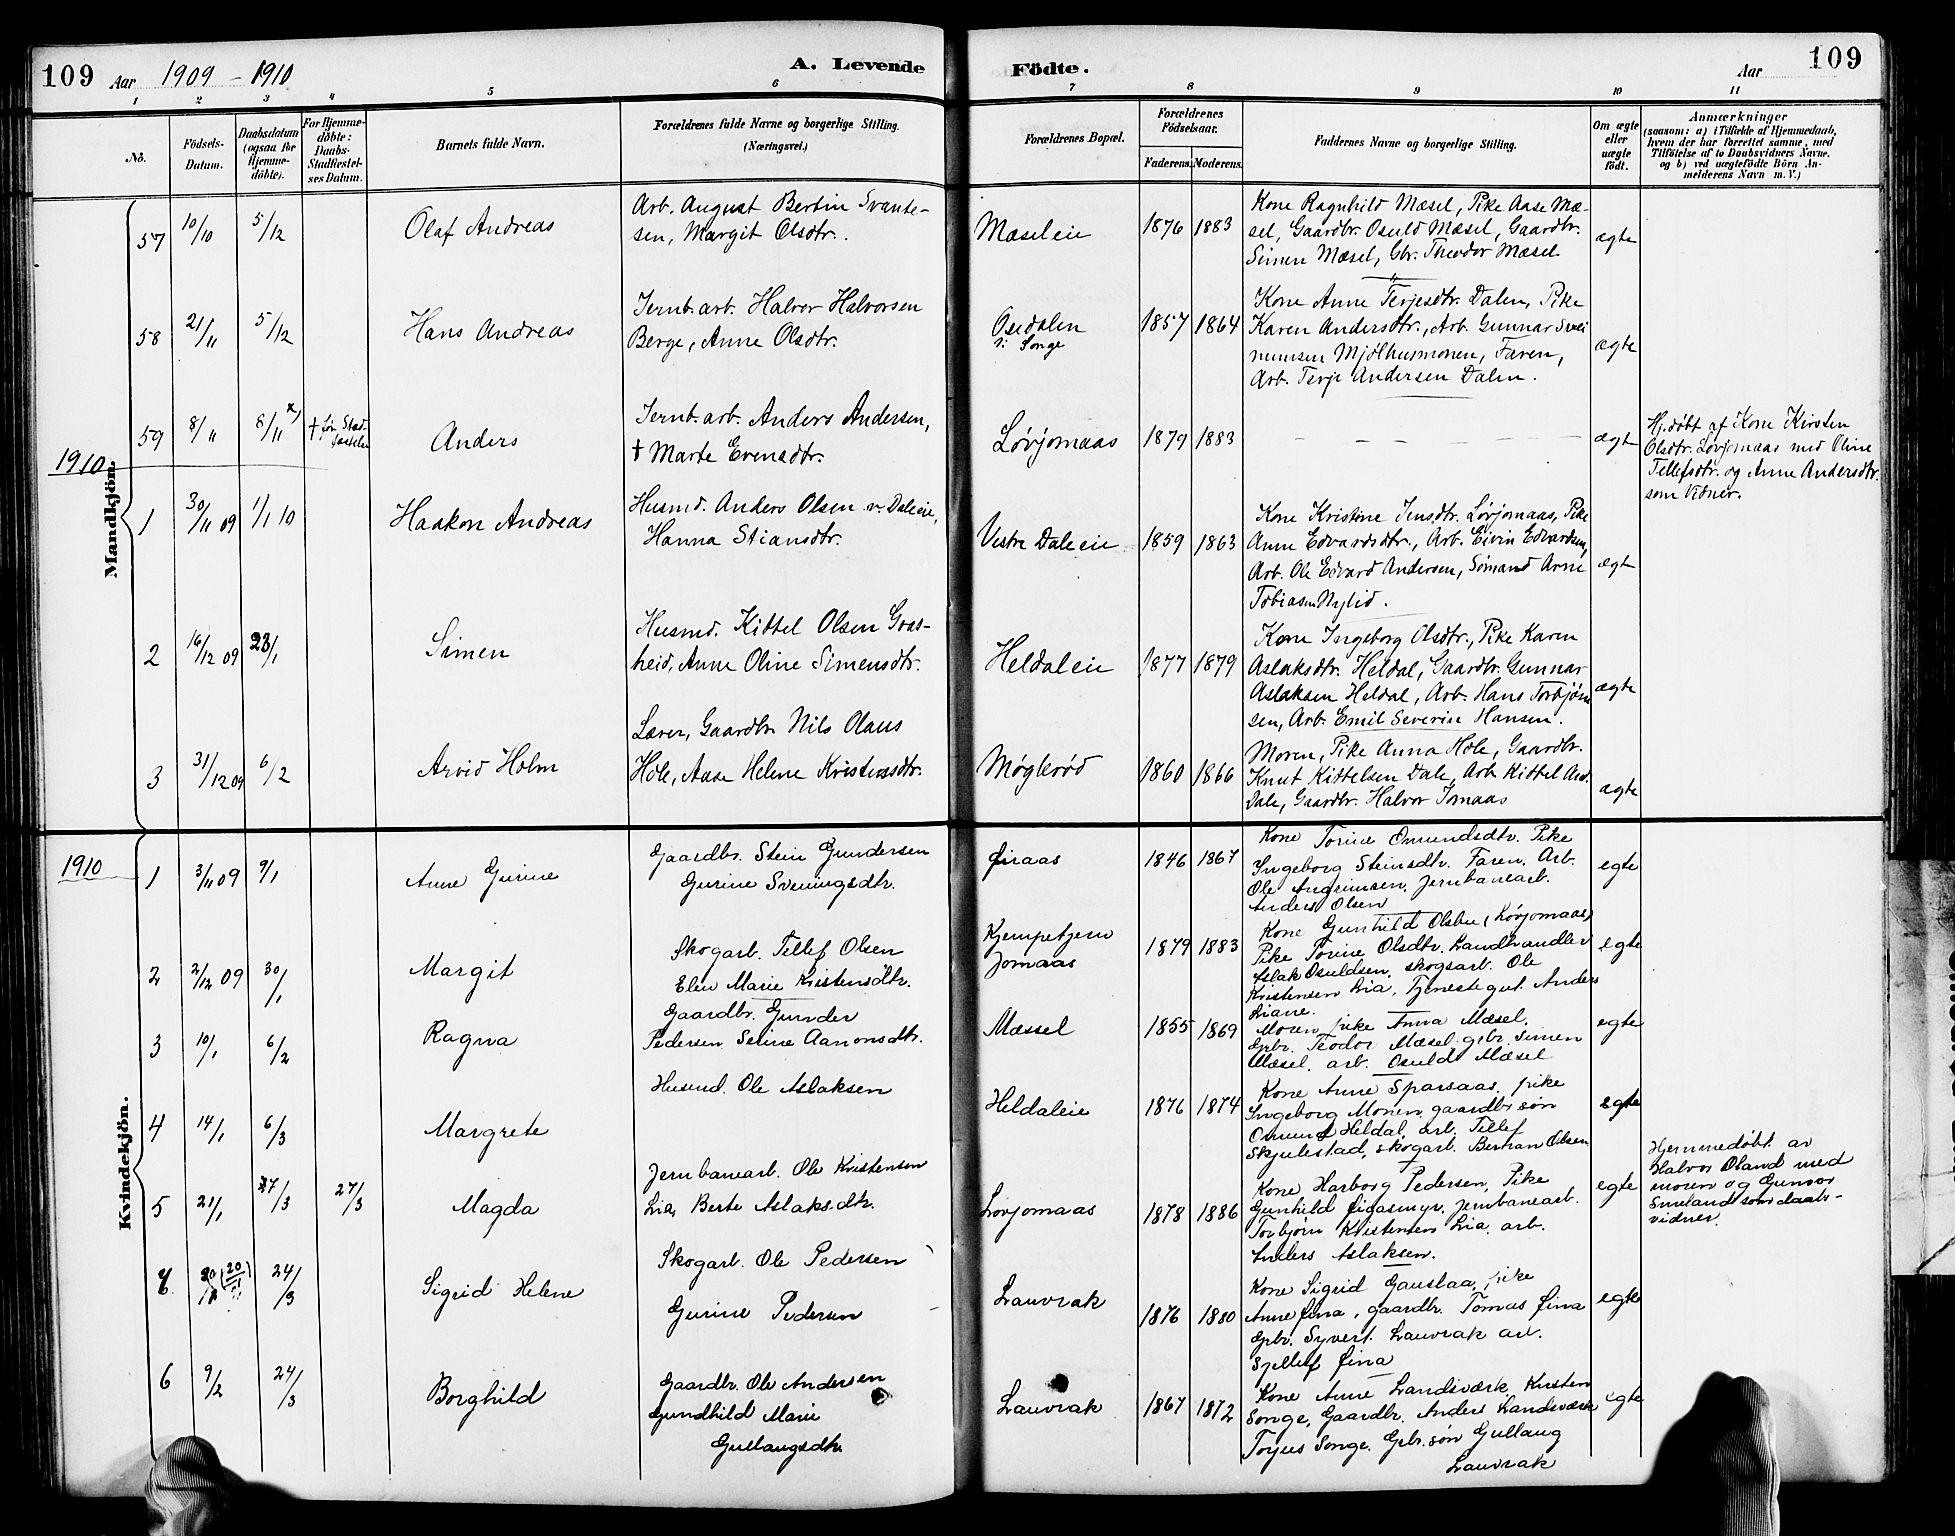 109 Aar 1909 - 1910 A. Levende Födte. Aar 109
1 2 3 4 5 6 7 8 9 10 11
No.
Födsels-
Datum.
Daabsdatum
(ogsaa for
Hjemme-
döbte).
For Hjemme-
döbte:
Daabs-
Stadfæstel-
ses Datum.
Barnets fulde Navn.
Forældrenes fulde Navne og borgerlige Stilling.
(Næringsvei.)
Forældrenes Bopæl.
Forældrenes
Födselsaar.
Faderens. Moderens.
Faddernes Navne og borgerlige Stilling.
Om ægte
eller
uægte
födt.
Anmærkninger
(saasom: a) i Tilfælde af Hjemmedaab,
hvem der har forrettet samme, med
Tilföielse af to Daabsvidners Navne,
og b) ved uægtefödte Börn An-
melderens Navn m. V.)
Mandkjön.
57 10/10 5/12 Olaf Andreas
Arb. August Bertin Svante-
sen, Margit Olsdtr.
Mæseleie 1876 1883
Kone Ragnhild Mæsel, Pike Aase Mæ-
sel, Gaardbr. Osuld Mæsel, Gaardbr.
Simen Mæsel, Gbr. Theodor Mæsel
ægte
58 21/11 5/12 Hans Andreas
Jernb.arb. Halvor Halvorsen
Berge, Anne Olsdtr.
Osedalen
v: Songe
1857 1864
Kone Anne Terjesdtr. Dalen, Pike
Karen Andersdtr., Arb. Gunnar Svei
nunsen Mjølhusmonen, Faren,
Arb. Terje Andersen Dalen.
ægte
59 8/11 8/11 x) † før Stad-
fæstelsen
Anders
Jernb.arb. Anders Andersen,
† Marte Evensdtr.
Løvjomaas 1879 1883 – – – – – – ægte
Hj.døbt af Kone Kirsten
Olsdtr. Løvjomaas med Oline
Tellefsdtr. og Anne Andersdtr.
som Vidner.
1910
1 30/11 09 1/1 10 Haakon Andreas
Husmd. Anders Olsen v. Daleie,
Hanna Stiansdtr.
Vestre Daleeie 1859 1863
Kone Kristine Jensdtr. Løvjomaas, Pike
Anne Edvardsdtr., Arb. Eivin Edvardsen,
Arb. Ole Edvard Andersen, Sømand Arne
Tobiasen Nylid.
ægte
2 16/12 09 23/1 Simen
Husmd. Kittel Olsen Gras-
heid, Anne Oline Simensdtr.
Heldaleie 1877 1879
Kone Ingeborg Olsdtr., Pike Karen
Aslaksdtr. Heldal, Gaardbr. Gunnar
Aslaksen Heldal, Arb. Hans Torbjørn
sen, Arb. Emil Severin Hansen.
ægte
3 31/12 09 6/2 Arvid Holm
Lærer, Gaardbr. Nils Olaus
Hole, Aase Helene Kristensdtr.
Møglerød 1860 1866
Moren, Pike Anna Hole, Gaardbr.
Knut Kittelsen Dale, Arb. Kittel And.
Dale, Gaardbr. Halvor Jomaas
ægte
Kvindekjön.
1910
1 3/11 09 9/1 Anne Gurine
Gaardbr. Stein Gundersen
Gurine Sveningsdtr.
Øinaas 1846 1867
Kone Torine Omundsdtr. Pike
Ingeborg Steinsdtr. Faren. Arb.
Ole Angrimsen, Jernbanearb.
Anders Olsen
egte
2 2/12 09 30/1 Margit
Skogarb. Tellef Olsen
Elen Marie Kristensdtr.
Kjempetjern
Jomaas
1879 1883
Kone Gunhild Olsen (Løvjomaas)
Pike Torine Olsdtr. Landhandler
Aslak Osuldsen, skogsarb. Ole
Kristensen Lia, Tjenestegut Anders
Liane.
egte
3 10/1 6/2 Ragna
Gaardbr. Gunder
Pedersen Seline Aanonsdtr.
Mæssel 1855 1869
Moren, pike Anna Mæsel,
Grbr. Teodor Mæsel grbr. Simen
Mæsel, arb. Osuld Mæsel
egte
4 14/1 6/3 Margrete
Husmd. Ole Aslaksen
Heldaleie 1876 1874
Kone Anne Sparsaas, pike
Ingeborg Monen, gaardbr.søn
Omund Heldal, arb. Tellef
Skjulestad, skogarb. Bertran Olsen
egte
5 21/1 27/3 27/3 Magda
Jernbanearb. Ole Kristensen
Lia, Berte Aslaksdtr.
Løvjomaas 1878 1886
Kone Harborg Pedersen, Pike
Gunhild Øigasmyr, Jernbanearb.
Torbjørn Kristensen Lia, arb.
Anders Aslaksen.
egte
Hjemmedøbt av
Halvor Oland med
moren og Gunvor
Smeland som daabs-
vidner.
(20/11) 24/3 Sigrid Helene
Skogarb. Ole Pedersen
Gurine Pedersen
Lauvrak 1876 1880
Kone Sigrid Gauslaa, pike
Anne Øina, gaardbr. Tomas Øina
Grbr. Syvert Lauvrak arb.
Sjellef Øina
egte
6 9/2 24/3 Borghild
Gaardbr. Ole Andersen
Gundhild Marie
Gullaugsdtr.
Lauvrak 1867 1872
Kone Anne Landsværk, Kirsten
Songe, Gaardbr. Anders Landsværk
Torjus Songe. Grbr.søn Gullaug
Lauvrak
egte